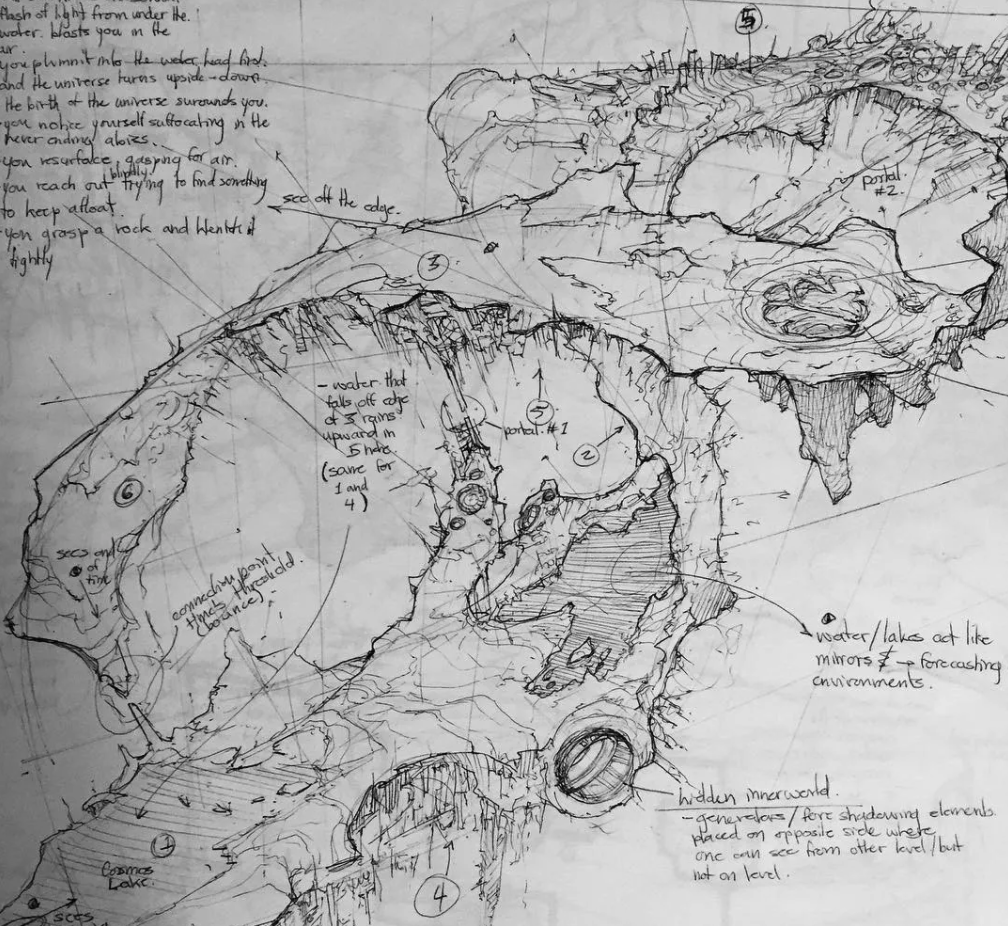 flash of light from under the.
water. blasts you in the
air.
you plummit into the water head first.
and the universe turns upside-down.
the birth of the universe surounds you.
you notice yourself suffocating in the
never ending
you resurface, gasping for air.
blindly.
you reach out trying to find something
to keep afloat.
you grasp a rock and it
tightly
see off the edge.
5
portal.
#2.
3
- water that
falls off edge
of 3 rains
upward in
5 here
(same for
1 and
4)
5
portal. #1
2
6
sees end
of
time
connecting point
threshold.
water/lakes act like
mirrors → forecasting
environments.
hidden innerworld.
- generators/fore shadowing elements
placed on opposite side where
one can see from other level/but
not on level.
1
Cosmos
Lake.
4
sees